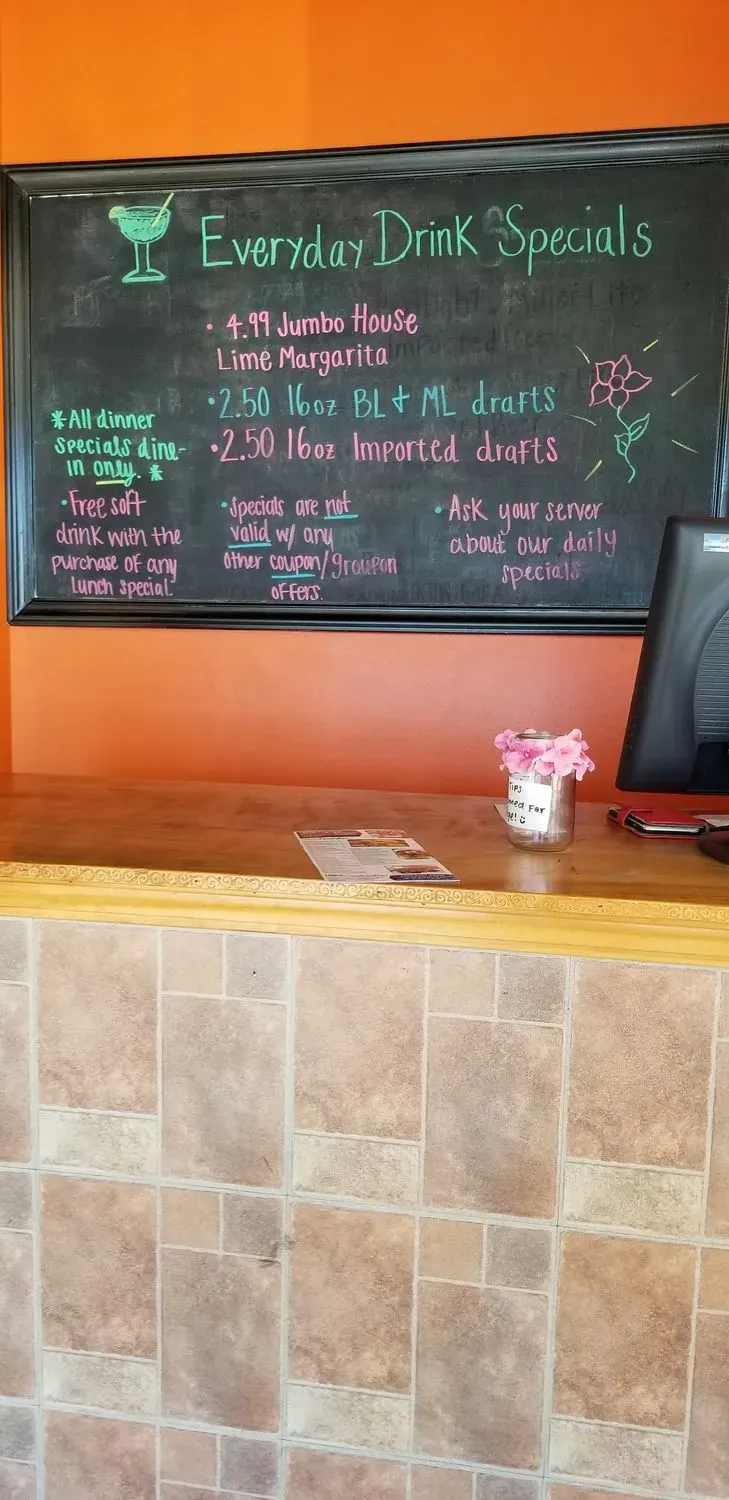 Everyday Drink Specials
• 4.99 Jumbo House
Lime Margarita
• 2.50 16oz BL + ML drafts
• 2.50 16oz Imported drafts
*All dinner
specials dine-
in only. *
• Free soft
drink with the
purchase of any
Lunch special.
• Specials are not
valid w/ any
other coupon/groupon
offers.
• Ask your server
about our daily
specials
Tips
For